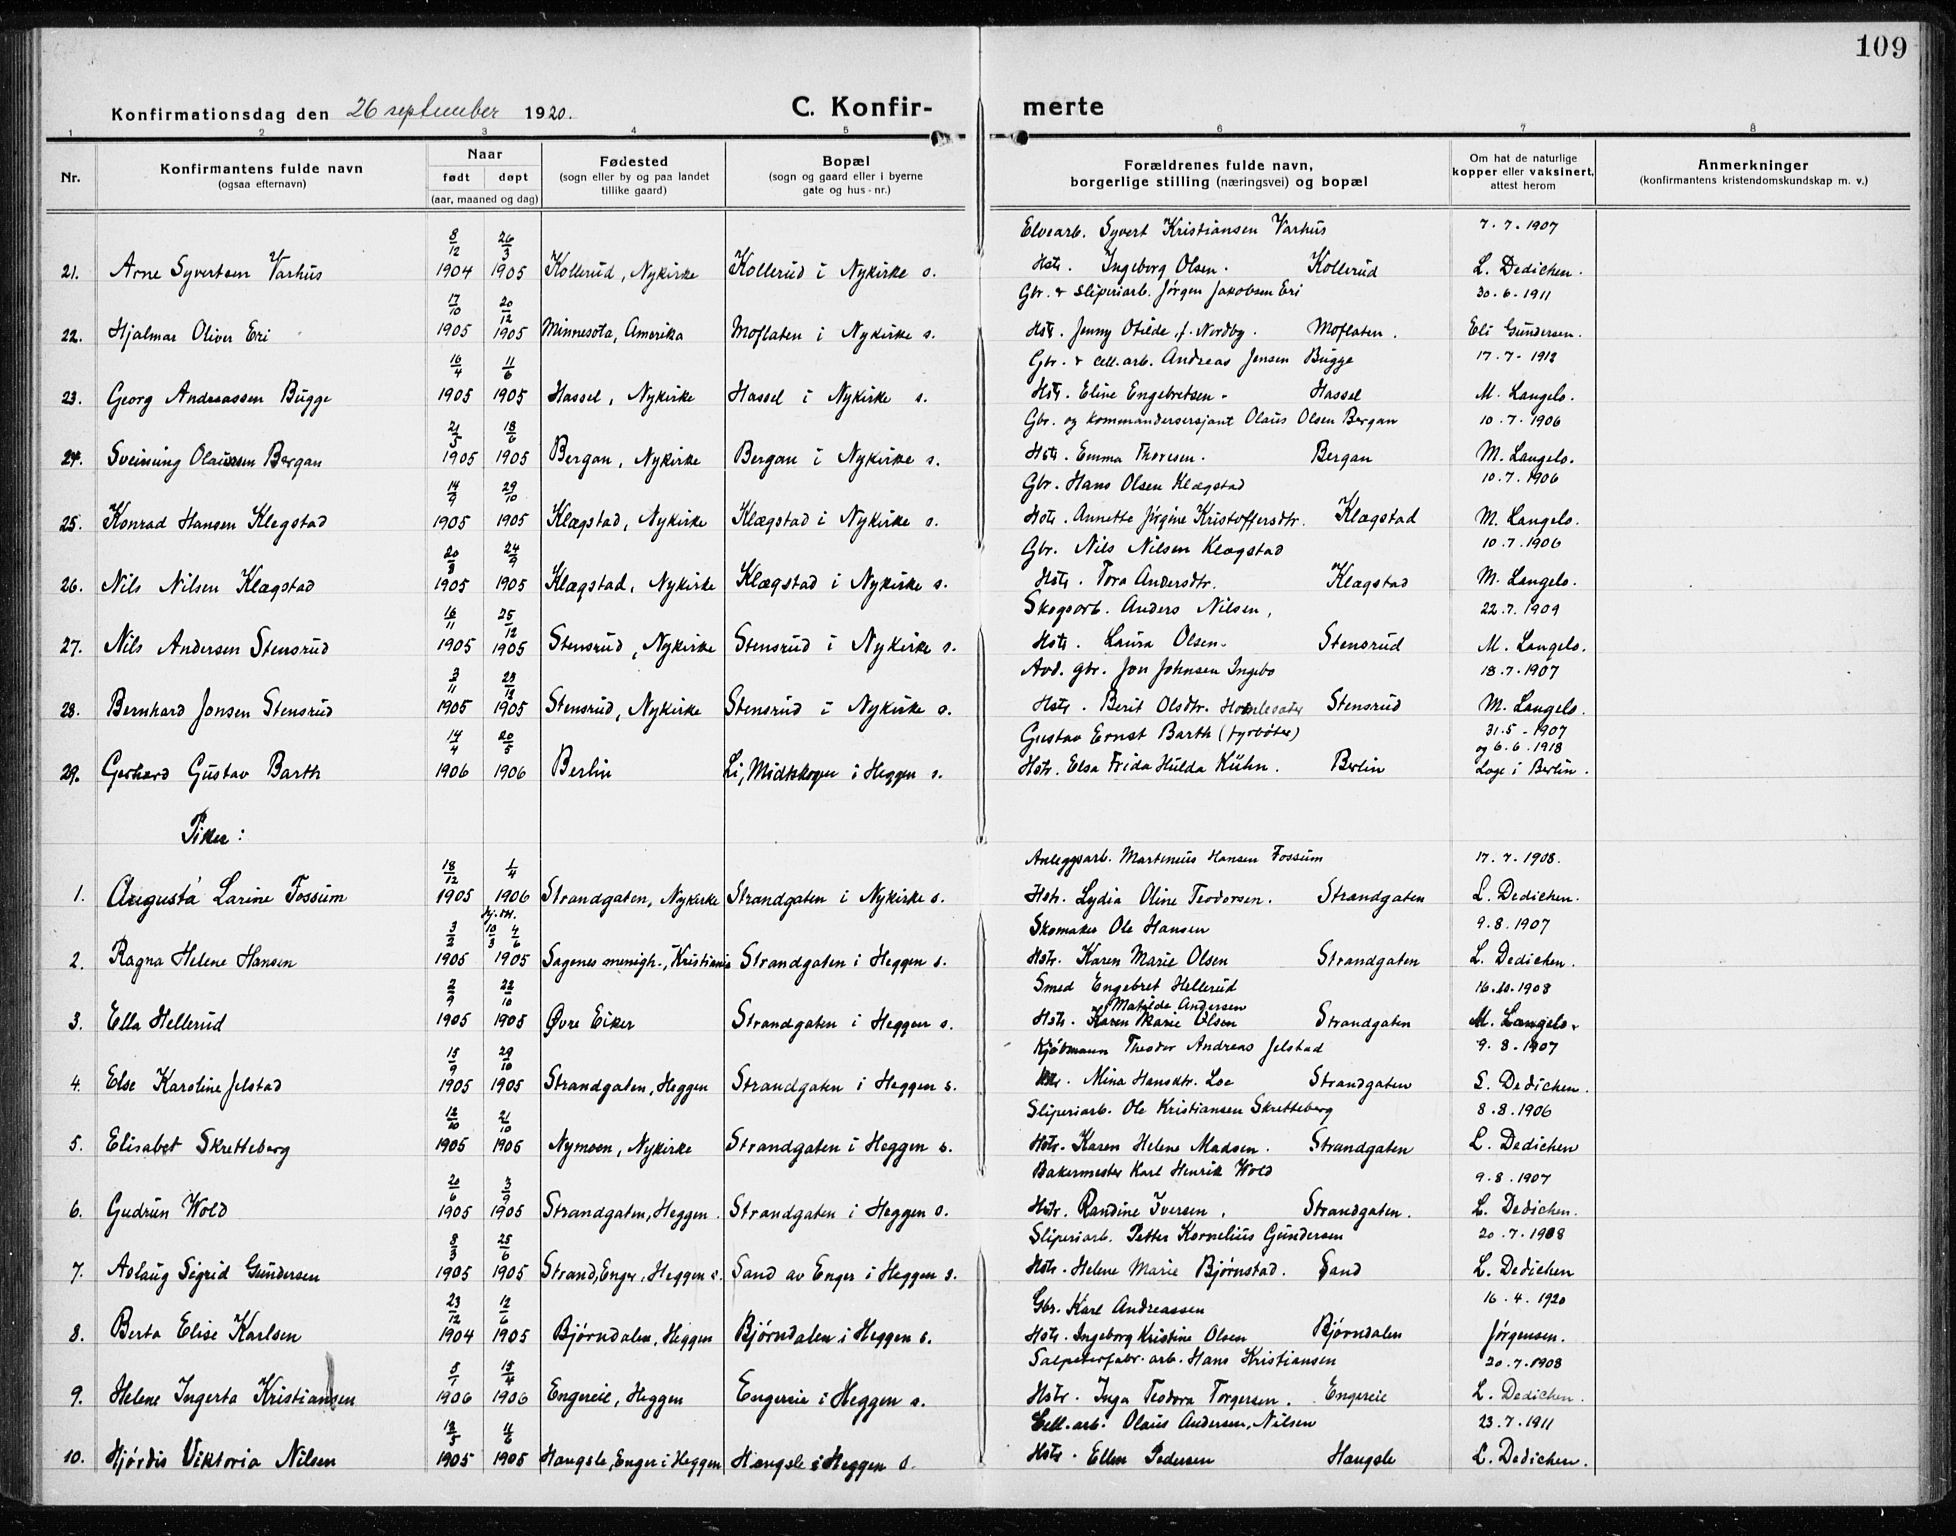 109
Konfirmationsdag den 26 september 1920. C. Konfir- merte
1 2 3 4 5 6 7 8
Nr. Konfirmantens fulde navn (ogsaa efternavn) Naar født døpt (aar, maaned og dag) Fødested (sogn eller by og paa landet tillike gaard) Bopæl (sogn og gaard eller i byerne gate og hus-nr.) Forældrenes fulde navn, borgerlige stilling (næringsvei) og bopæl Om hat de naturlige kopper eller vaksinert, attest herom Anmerkninger (konfirmantens kristendomskundskap m. v.)
8/12 26/3 Elvearb. Syvert Kristiansen Varhus 7.7.1907
21. Arne Syvertsen Varhus 1904 1905 Kollerud, Nykirke Kollerud i Nykirke s. Hstr. Ingeborg Olsen. Kollerud L. Dedichen.
17/10 20/12 Gbr. & sliperiarb. Jørgen Jakobsen Eri 30.6.1911
22. Hjalmar Oliver Eri 1905 1905 Minnesota, Amerika Moflaten i Nykirke s. Hstr. Jenny Otilde, f. Nordby. Moflaten. Eli Gundersen.
16/4 11/6 Gbr. & cell.arb. Andreas Jensen Bugge 17.7-1912
23. Georg Andreassen Bugge 1905 1905 Hassel, Nykirke Hassel i Nykirke s. Hstr. Eline Engebretsen. Hassel M. Langelo.
21/5 18/6 Gbr. og kommandersersjant Olaus Olsen Bergan 10.7.1906
24. Sveinung Olaussen Bergan 1905 1905 Bergan, Nykirke Bergan i Nykirke s. Hstr. Emma Thoresen. Bergan M. Langelo.
14/9 29/10 Gbr. Hans Olsen Klægstad 10.7.1906
25. Konrad Hansen Klegstad 1905 1905 Klægstad, Nykirke Klægstad i Nykirke s. Hstr. Annette Jørgine Kristoffersdtr. Klægstad M. Langelo.
20/8 24/9 Gbr. Nils Nilsen Klægstad 10.7.1906
26. Nils Nilsen Klægstad 1905 1905 Klægstad, Nykirke Klægstad i Nykirke s. Hstr. Tora Andersdtr. Klægstad M. Langelo.
16/11 25/12 Skogsarb. Anders Nilsen, 22.7.1909
27. Nils Andersen Stensrud 1905 1905 Stensrud, Nykirke Stensrud i Nykirke s. Hstr. Laura Olsen. Stensrud M. Langelo.
3/11 23/12 Avd. gbr. Jon Johnsen Ingebo 18.7.1907
28. Bernhard Jonsen Stensrud 1905 1905 Stensrud, Nykirke Stensrud i Nykirke s. Hstr. Berit Olsdtr. Stensrud M. Langelo.
14/4 20/5 Gustav Ernst Barth (fyrbøter) 31.5-1907 og 6.6.1918
29. Gerhard Gustav Barth 1906 1906 Berlin Li, Midtskogen i Heggen s. Hstr. Elsa Frida Hulda Kühn. Berlin Læge i Berlin.
Piker:
18/12 1/4 Anleggsarb. Martinius Hansen Fossum 17.7.1908.
1. Augusta Larine Fossum 1905 1906 Strandgaten, Nykirke Strandgaten i Nykirke s. Hstr. Lydia Oline Teodorsen. Strandgaten L. Dedichen.
3/2 10/3 4/6 Skomaker Ole Hansen 9.8.1907
2. Ragna Helene Hansen 1905 1905 Sagenes menigh., Kristiania Strandgaten i Heggen s. Hstr. Karen Marie Olsen Strandgaten L. Dedichen.
2/9 22/10 Smed Engebret Hellerud 16.10.1908
Matilde Andersen
3. Ella Hellerud 1905 1905 Øvre Eiker Strandgaten i Heggen s. Hstr. Karen Marie Olsen Strandgaten M. Langelo.
15/9 29/10 Kjøbmann Theodor Andreas Jelstad 9.8.1907
4. Else Karoline Jelstad 1905 1905 Strandgaten, Heggen Strandgaten i Heggen s. Hstr. Mina Hansdtr. Loe Strandgaten L. Dedichen.
12/10 21/10 Sliperiarb. Ole Kristiansen Skretteberg 8.8.1906
5. Elisabet Skretteberg 1905 1905 Nymoen, Nykirke Strandgaten i Heggen s. Hstr. Karen Helene Madsen. Strandgaten L. Dedichen
20/6 3/9 Bakermester Karl Henrik Wold 9.8.1907
6. Gudrun Wold 1905 1905 Strandgaten, Heggen. Strandgaten i Heggen s. Hstr. Randine Iversen. Strandgaten. L. Dedichen.
8/3 25/6 Sliperiarb. Petter Kornelius Gundersen 20.7.1908
7. Aslaug Sigrid Gundersen 1905 1905 Strand, Enger, Heggen s. Sand av Enger i Heggen s. Hstr. Helene Marie Bjørnstad. Sand L. Dedichen
23/12 12/6 Gbr. Karl Andreassen 16.4.1920
8. Berta Elise Karlsen 1904 1905 Bjørndalen, Heggen Bjørndalen i Heggen s. Hstr. Ingeborg Kristine Olsen Bjørndalen Jørgensen.
5/1 15/4 Salpeterfabr.arb. Hans Kristiansen 20.7.1908
9. Helene Ingerta Kristiansen 1906 1906 Engereie, Heggen Engereie i Heggen s. Hstr. Inga Teodora Torgersen. Engereie L. Dedichen.
13/5 11/6 Cell.arb. Olaus Andersen, Nilsen 23.7.1911
10. Hjørdis Viktoria Nilsen 1905 1905 Haugsle, Enger i Heggen Haugsle i Heggen s. Hstr. Ellen Pedersen Haugsle L. Dedichen.